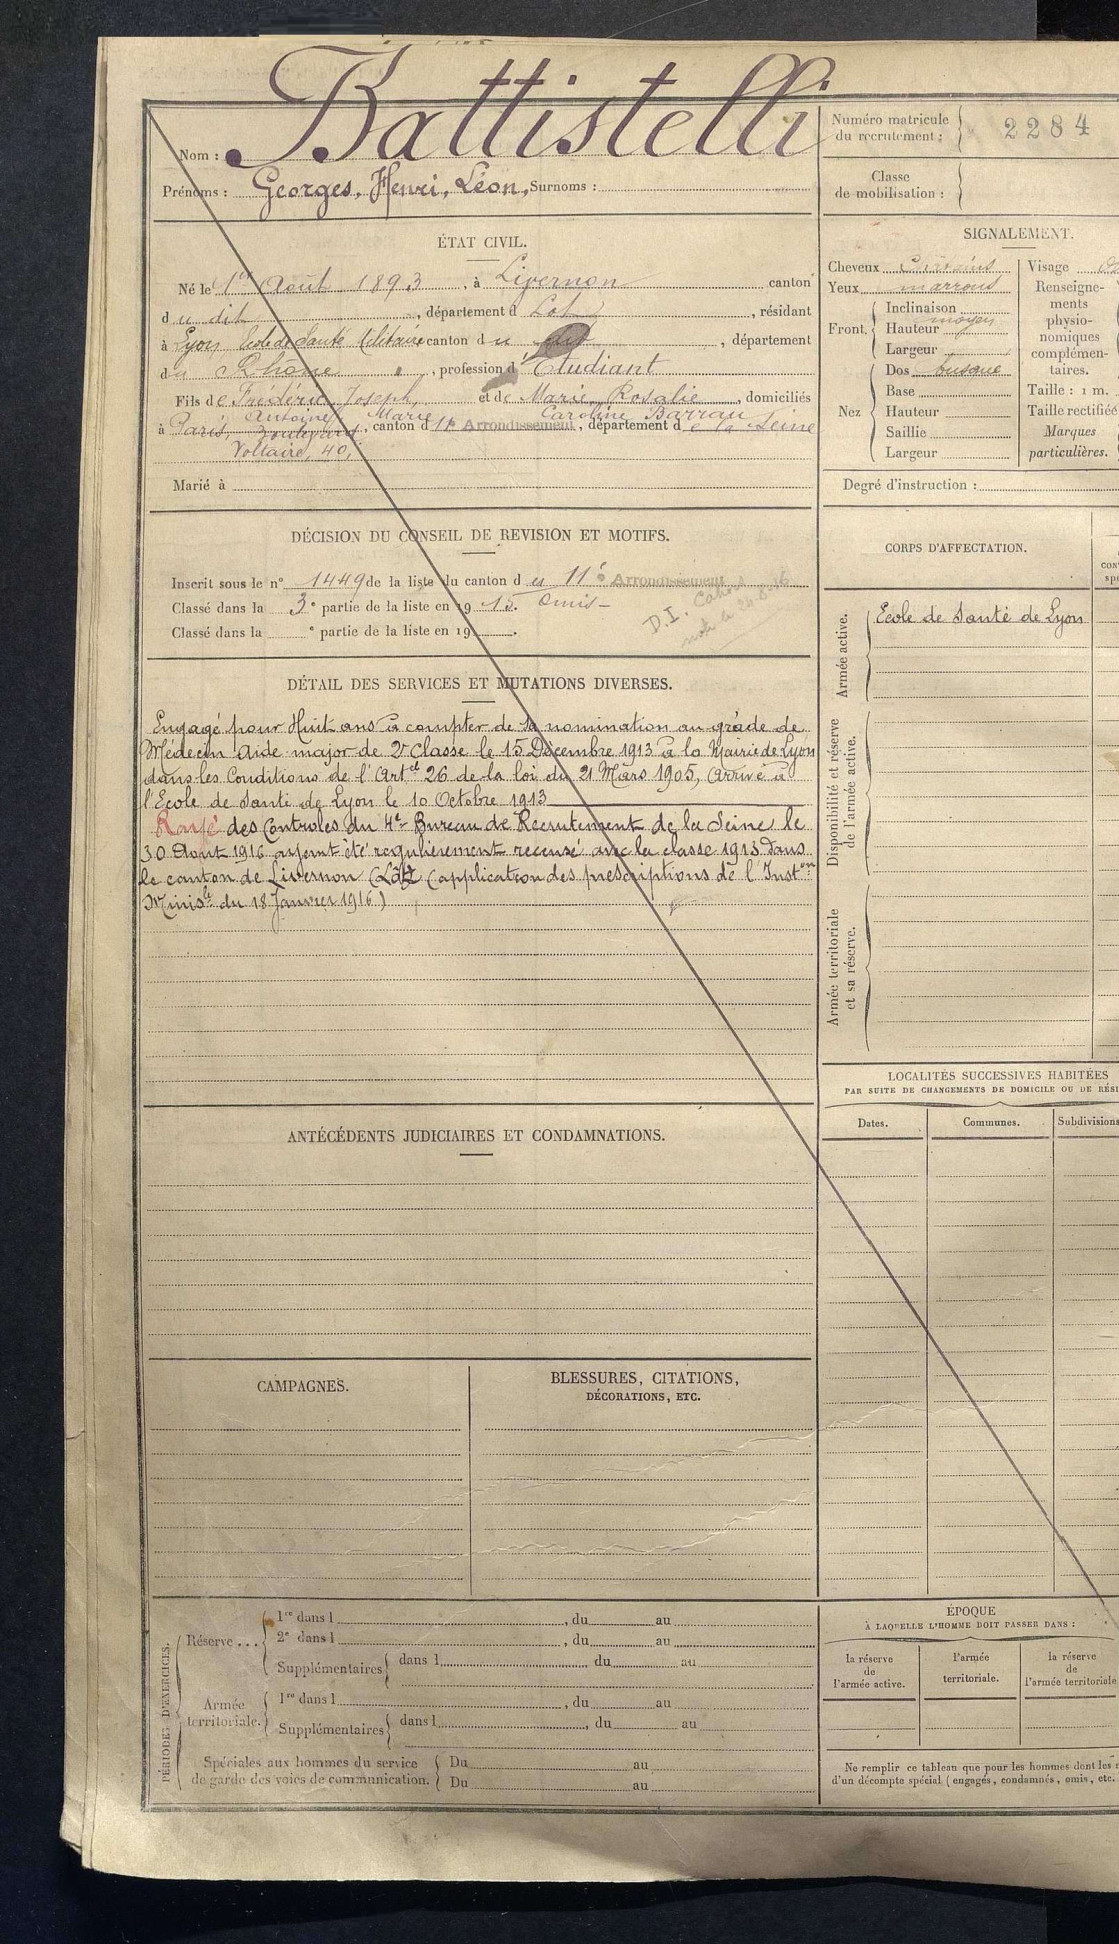 Nom : Battistelli
Prénoms : Georges, Henri, Léon, Surnoms :
Numéro matricule du recrutement : 2284
Classe de mobilisation :
ÉTAT CIVIL.
Né le 1er Août 1893, à Livernon canton
du dit, département d Lot, résidant
à Lyon Ecole de Santé Militaire canton du dit, département
du Rhône, profession d'Etudiant
Fils de Frédéric, Joseph, et de Marie, Rosalie, domiciliés
Antoine, Marie Caroline Barrau
à Paris, boulevard, canton d 11e Arrondissement, département de la Seine
Voltaire, 40,
Marié à
SIGNALEMENT.
Cheveux châtains
Yeux marrons
Front. Inclinaison
Hauteur moyen
Largeur
Nez Dos busqué
Base
Hauteur
Saillie
Largeur
Visage
Renseigne-
ments
physio-
nomiques
complémen-
taires.
Taille : 1 m.
Taille rectifiée
Marques
particulières.
Degré d'instruction :
DÉCISION DU CONSEIL DE REVISION ET MOTIFS.
Inscrit sous le n° 1449 de la liste du canton du 11e Arrondissement
Classé dans la 3e partie de la liste en 1915. Omis
Classé dans la e partie de la liste en 19 .
D.I. Cahors
CORPS D'AFFECTATION.
Armée active.
Ecole de Santé de Lyon
Disponibilité et réserve de l'armée active.
Armée territoriale et sa réserve.
DÉTAIL DES SERVICES ET MUTATIONS DIVERSES.
Engagé pour Huit ans à compter de sa nomination au grade de
Médecin Aide major de 2e Classe le 15 Décembre 1913 à la Mairie de Lyon
dans les Conditions de l'Artcl 26 de la loi du 21 Mars 1905, Arrivé à
l'Ecole de Santé de Lyon le 10 Octobre 1913
Rayé des Controles du 4e Bureau de Recrutement de la Seine le
30 Aout 1916 ayant été régulièrement recensé avec la classe 1913 dans
le canton de Livernon (Lot) (application des prescriptions de l'Inston
Minislle du 18 Janvier 1916)
LOCALITÉS SUCCESSIVES HABITÉES
PAR SUITE DE CHANGEMENTS DE DOMICILE OU DE RÉSI
Dates. Communes. Subdivisions
ANTÉCÉDENTS JUDICIAIRES ET CONDAMNATIONS.
CAMPAGNES.
BLESSURES, CITATIONS,
DÉCORATIONS, ETC.
PÉRIODES D'EXERCICES.
Réserve ... 1re dans l , du au
2e dans l , du au
Supplémentaires dans l du au
Armée territoriale. 1re dans l , du au
Supplémentaires dans l , du au
Spéciales aux hommes du service Du au
de garde des voies de communication. Du au
ÉPOQUE
À LAQUELLE L'HOMME DOIT PASSER DANS :
la réserve de l'armée active.
l'armée territoriale.
la réserve de l'armée territoriale
Ne remplir ce tableau que pour les hommes dont les
d'un décompte spécial (engagés, condamnés, omis, etc.